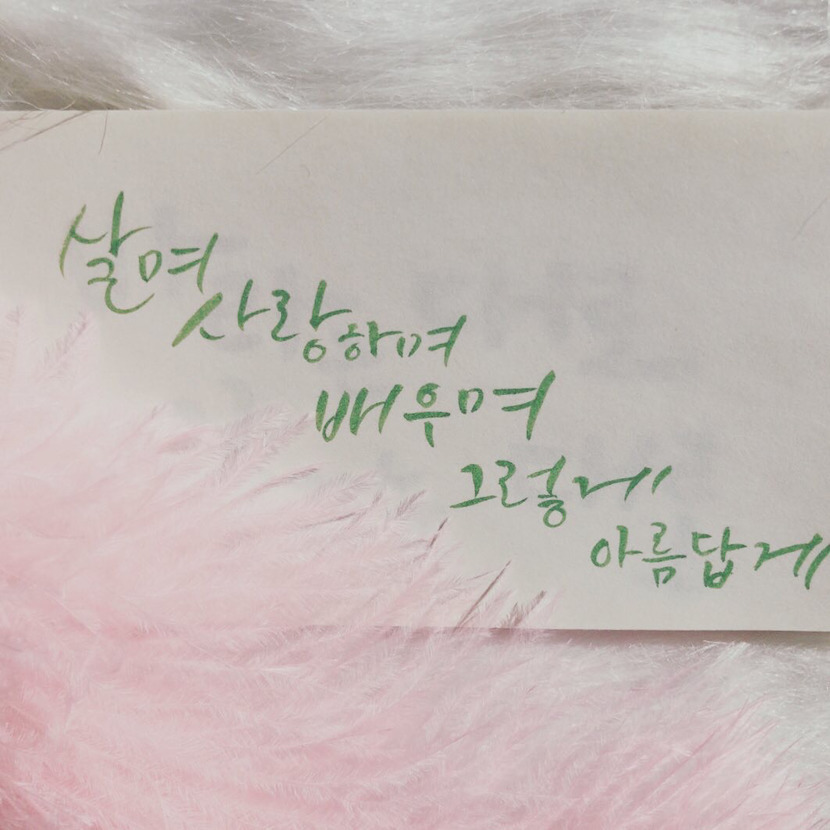 살며
사랑하며
배우며
그렇게
아름답게